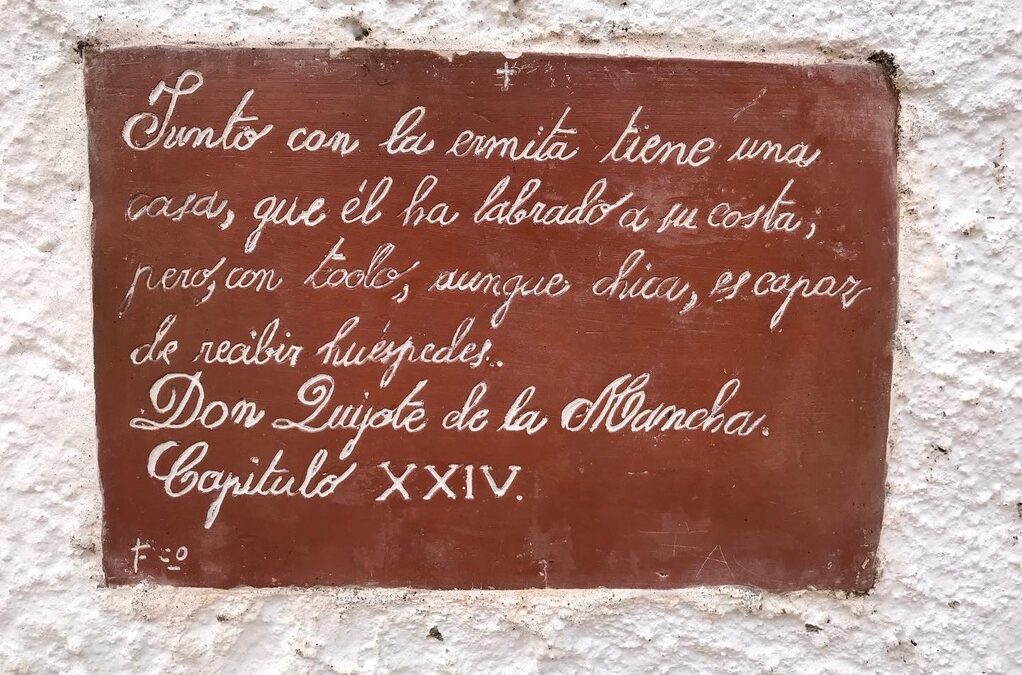 Junto con la ermita tiene una
casa, que él ha labrado a su costa;
pero, con todo, aunque chica, es capaz
de recibir huéspedes.
Don Quijote de la Mancha.
Capitulo XXIV.
Fco